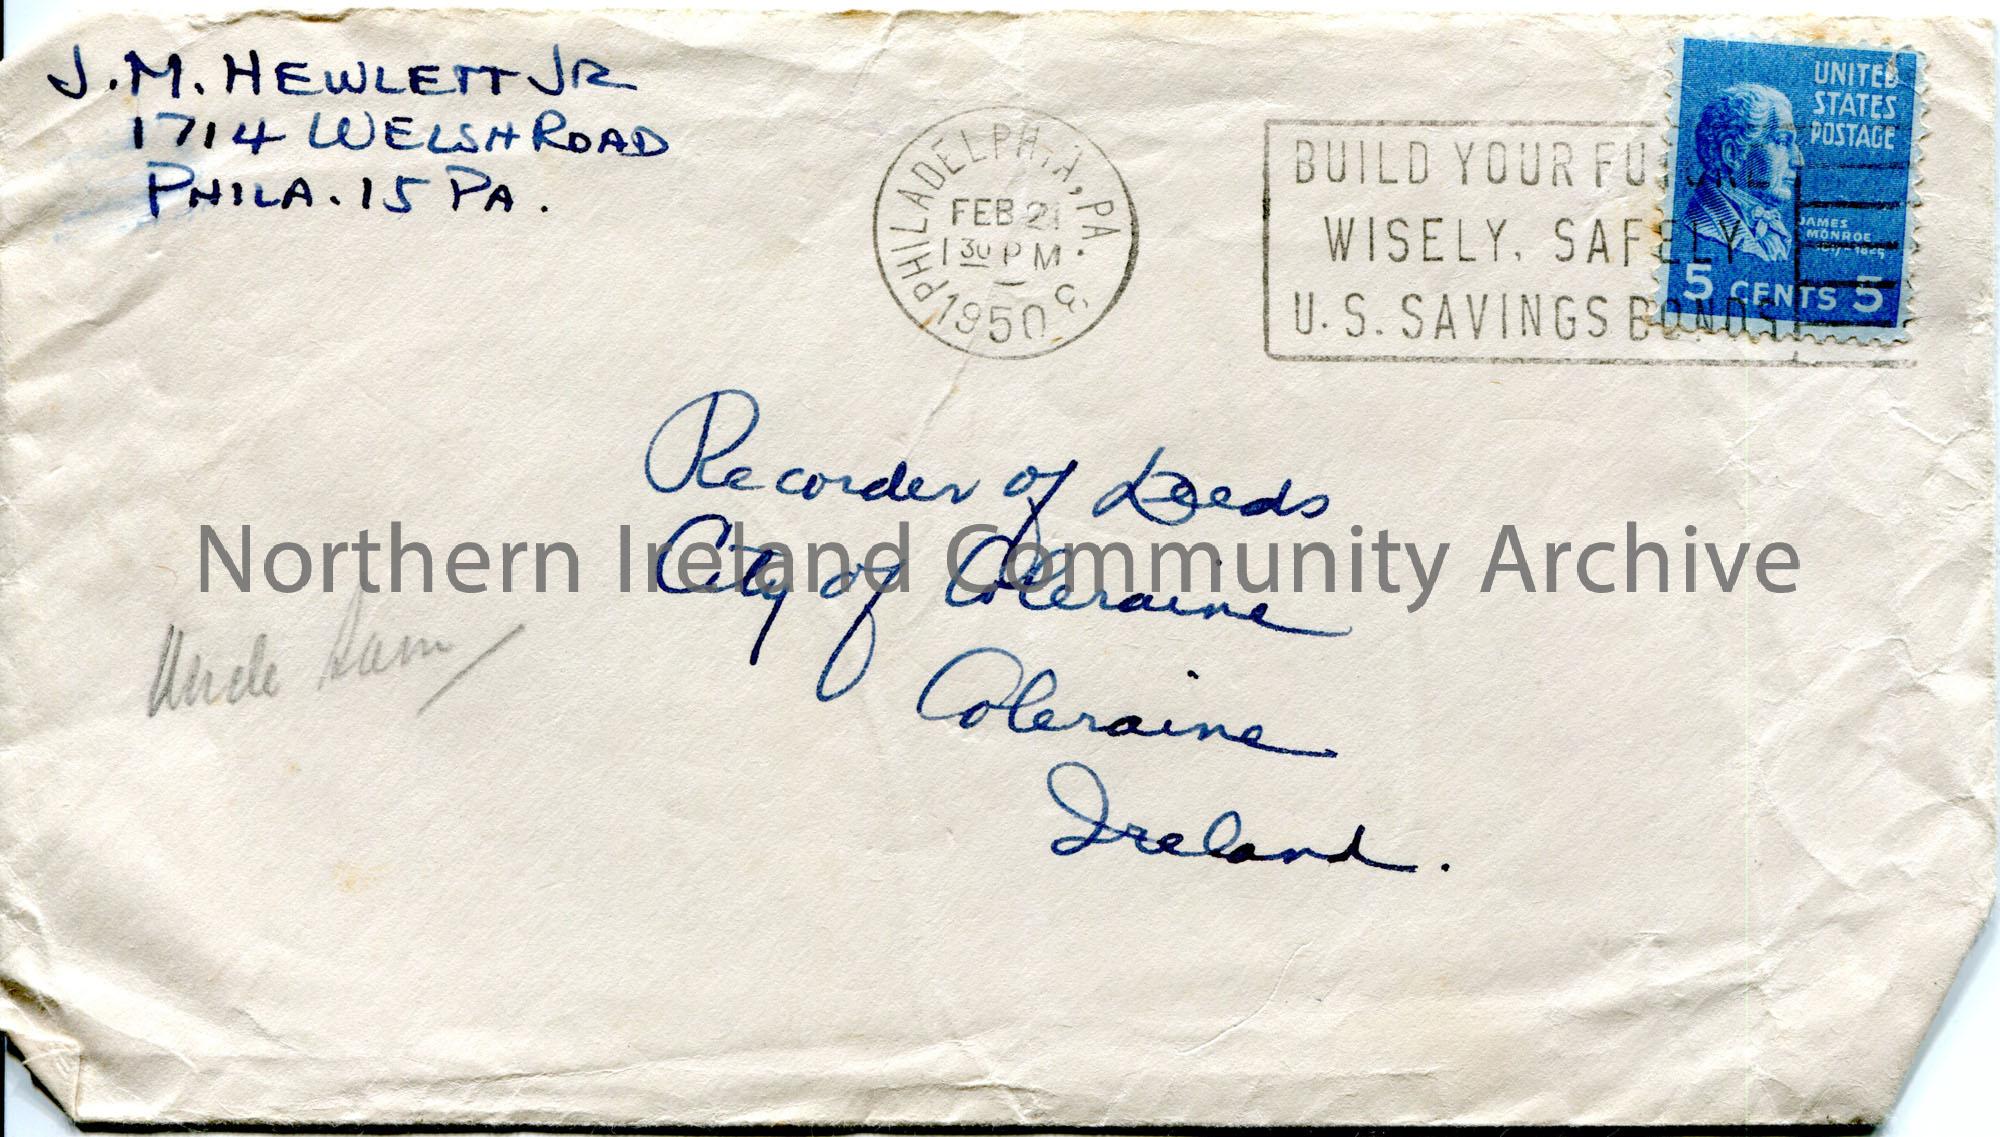 J.M. HEWLETT JR
1714 WELSH ROAD
PHILA. 15 PA.
PHILADELPHIA, PA.
FEB 21
1 30 PM
1950
BUILD YOUR FUTURE
WISELY, SAFELY
U.S. SAVINGS BONDS
UNITED
STATES
POSTAGE
JAMES
MONROE
5 CENTS 5
Recorder of Deeds
City of Coleraine
Coleraine
Ireland.
Northern Ireland Community Archive
Uncle Sam